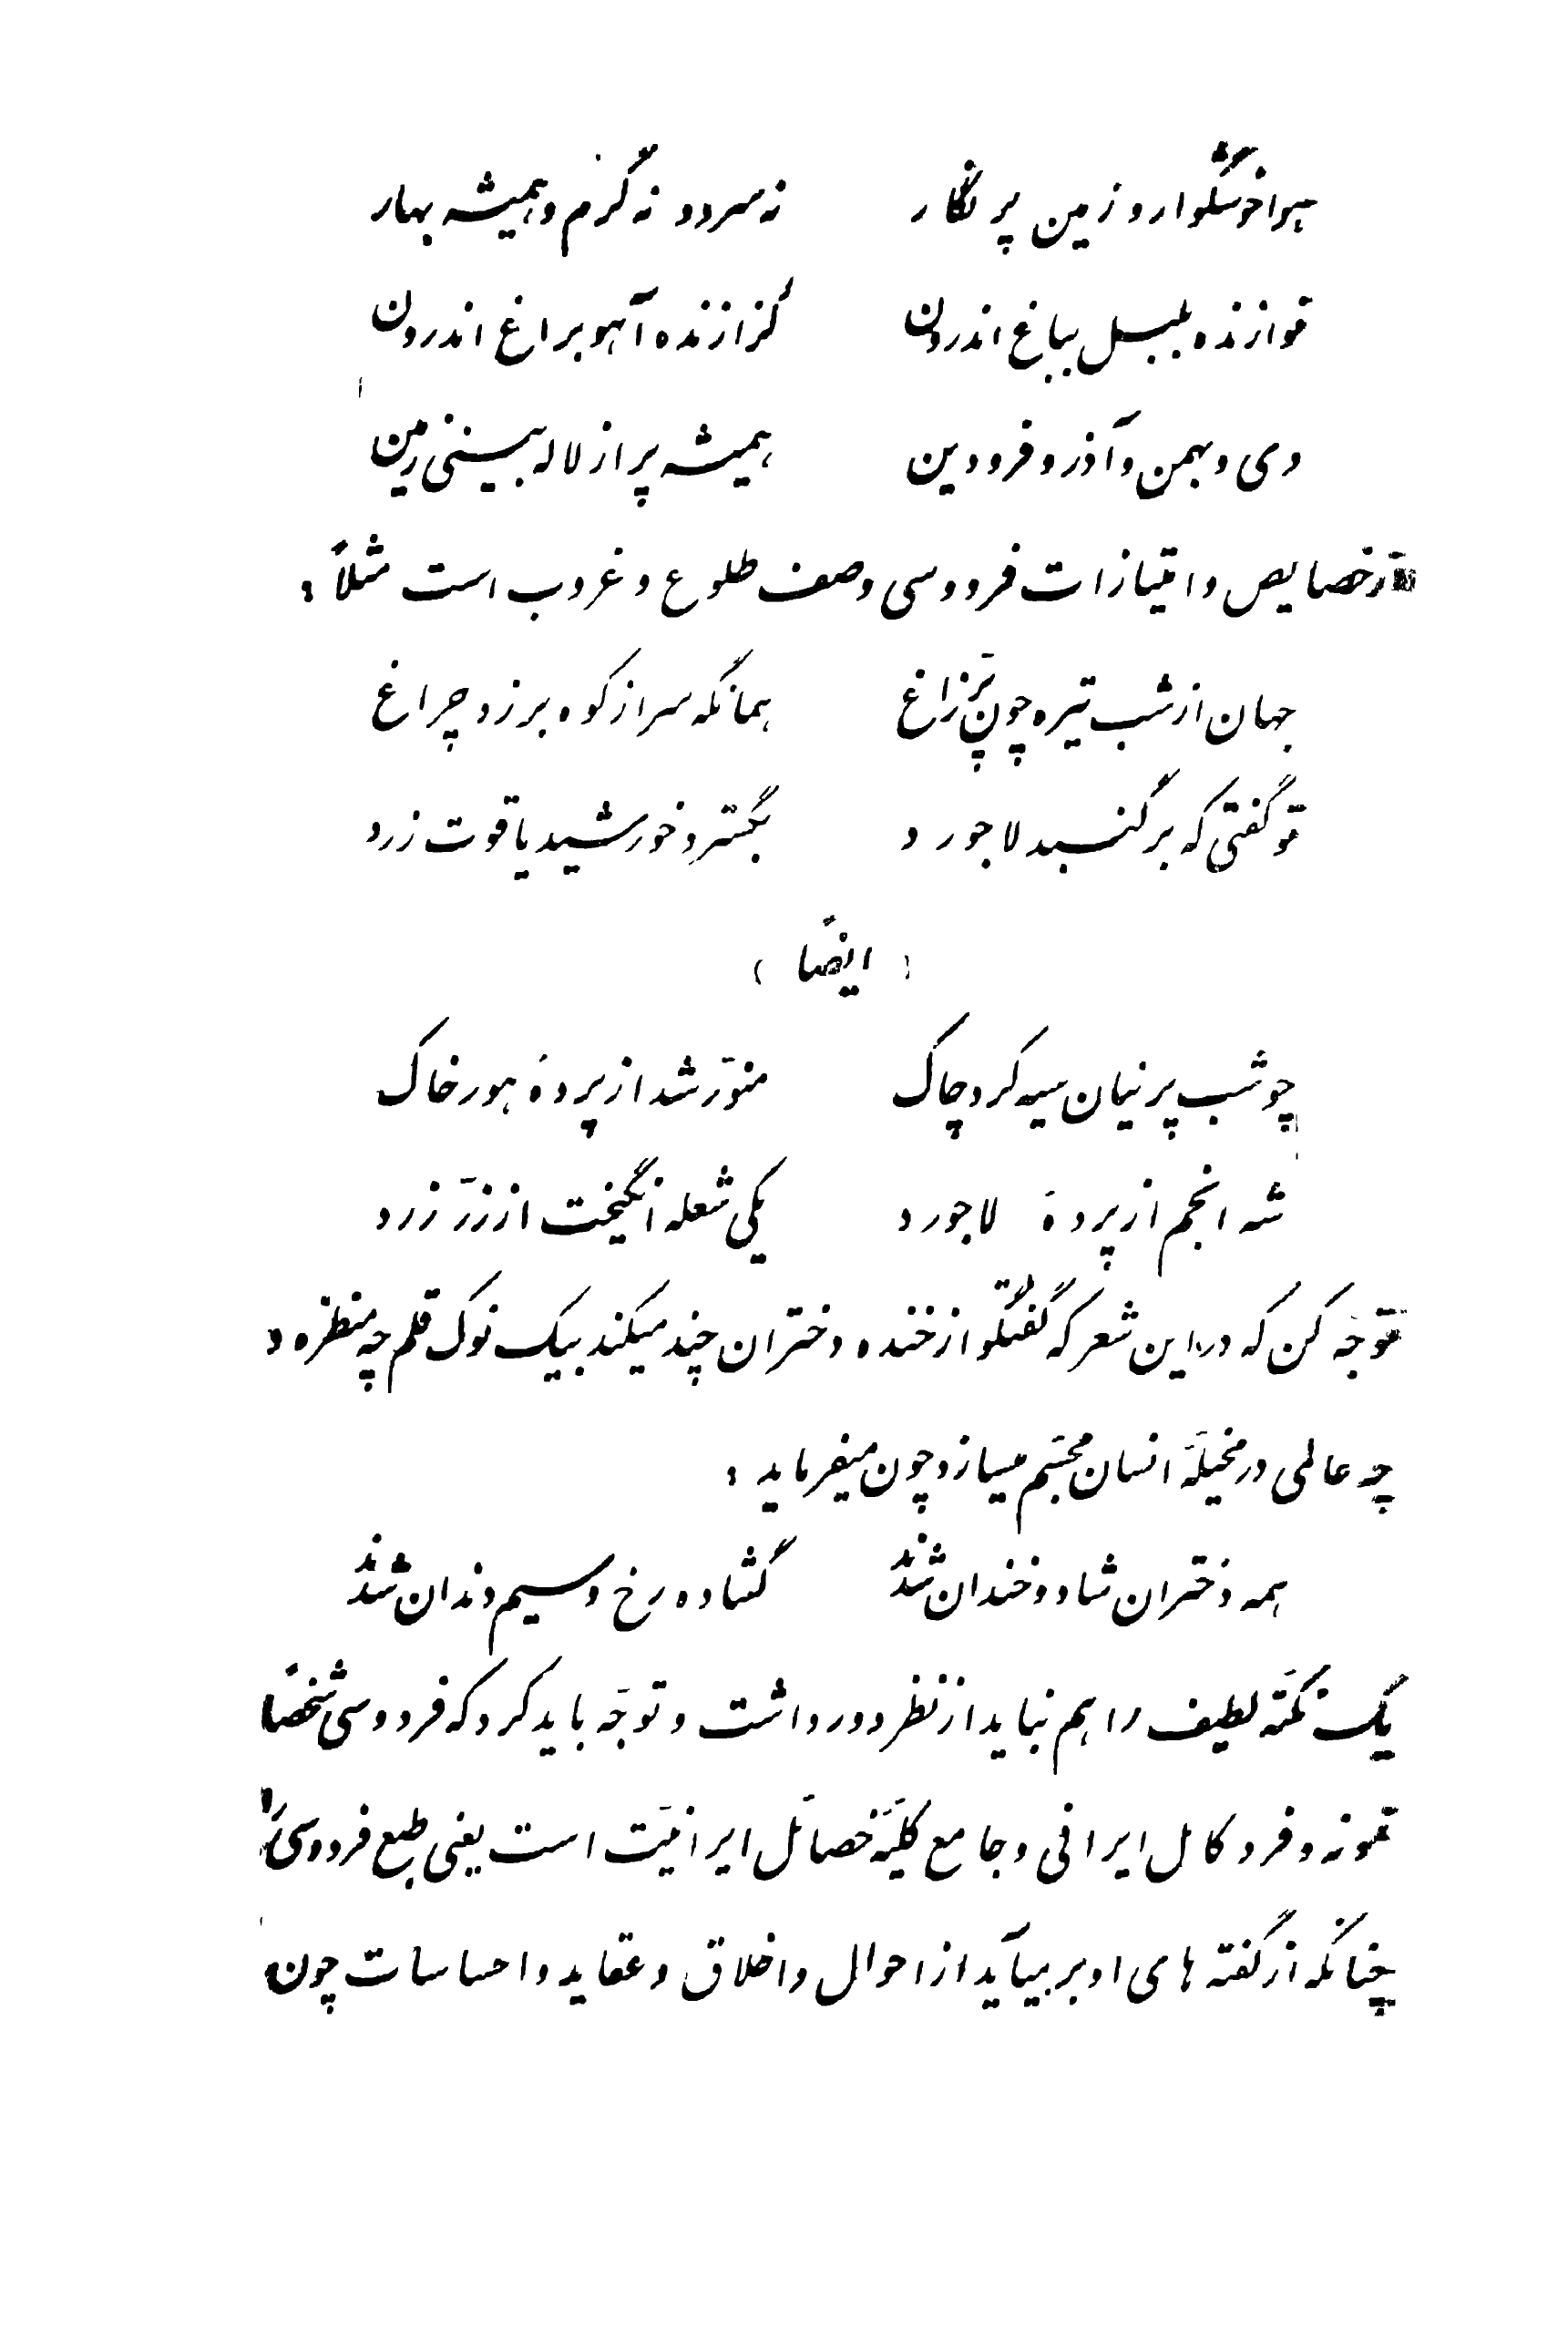 هوا خوشگوار و زمین پر نگار نه سرد و نه گرم و همیشه بهار
نوازنده بلبل بباغ اندرون گرازنده آهو براغ اندرون
دی و بهمن و آذر و فرودین همیشه پر از لاله بینی زمین
از خصایص و امتیازات فردوسی وصف طلوع و غروب است مثلاً :
جهان از شب تیره چون پرّ زاغ همانگه سر از کوه بر زد چراغ
تو گفتی که بر گنبد لاجورد بگسترد خورشید یاقوت زرد
( ایضاً )
چو شب پرنیان سیه کرد چاک منوّر شد از پردهٔ هور خاک
شه انجم از پردهٔ لاجورد یکی شعله انگیخت از زرّ زرد
توجّه کن که در این شعر که گفتگو از خنده دختران چند میکند بیک نوک قلم چه منظره و
چه عالمی در مخیلّهٔ انسان مجسّم میسازد چون میفرماید :
همه دختران شاد و خندان شدند گشاده رخ و سیم دندان شدند
یک نکتهٔ لطیف را هم نباید از نظر دور داشت و توجّه باید کرد که فردوسی شخصاً
نمونه و فرد کامل ایرانی و جامع کلیّهٔ خصائل ایرانیّت است یعنی طبع فردوسی را
چنانکه از گفته های او بر میآید از احوال و اخلاق و عقاید و احساسات چون